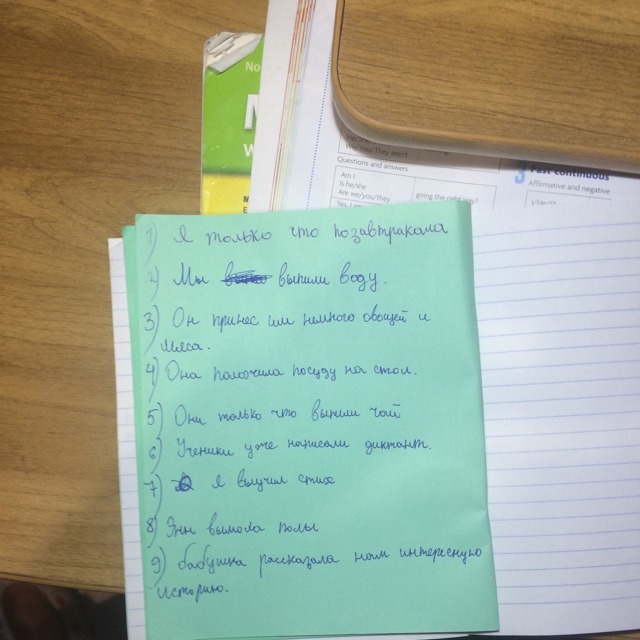 No
M
W
M
E
We/You/They aren't
Questions and answers
Am I
Is he/she
Are we/you/they
going the right way?
Yes, I am
3 Past continuous
Affirmative and negative
I/He/She
1) Я только что позавтракала
2) Мы выпили воду.
3) Он принес им немного овощей и
мяса.
4) Она положила посуду на стол.
5) Они только что выпили чай
6) Ученики уже написали диктант.
7) Я выучил стихе
8) Энн вымола полы
9) бабушка рассказала нам интересную
историю.